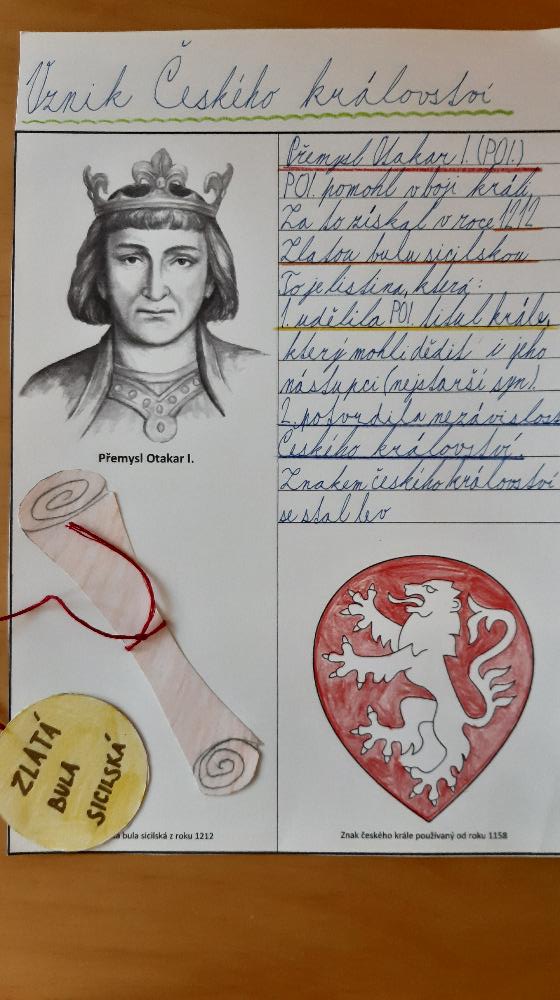 Vznik Českého království
Přemysl Otakar I. (POI.)
POI. pomohl v boji králi.
Za to získal v roce 1212
Zlatou bulu sicilskou
To je listina, která:
1. udělila POI titul krále,
který mohli dědit i jeho
nástupci (nejstarší syn).
2. potvrdila nezávislost
Českého království.
Znakem českého království
se stal lev
Přemysl Otakar I.
ZLATÁ
BULA
SICILSKÁ
bula sicilská z roku 1212
Znak českého krále používaný od roku 1158